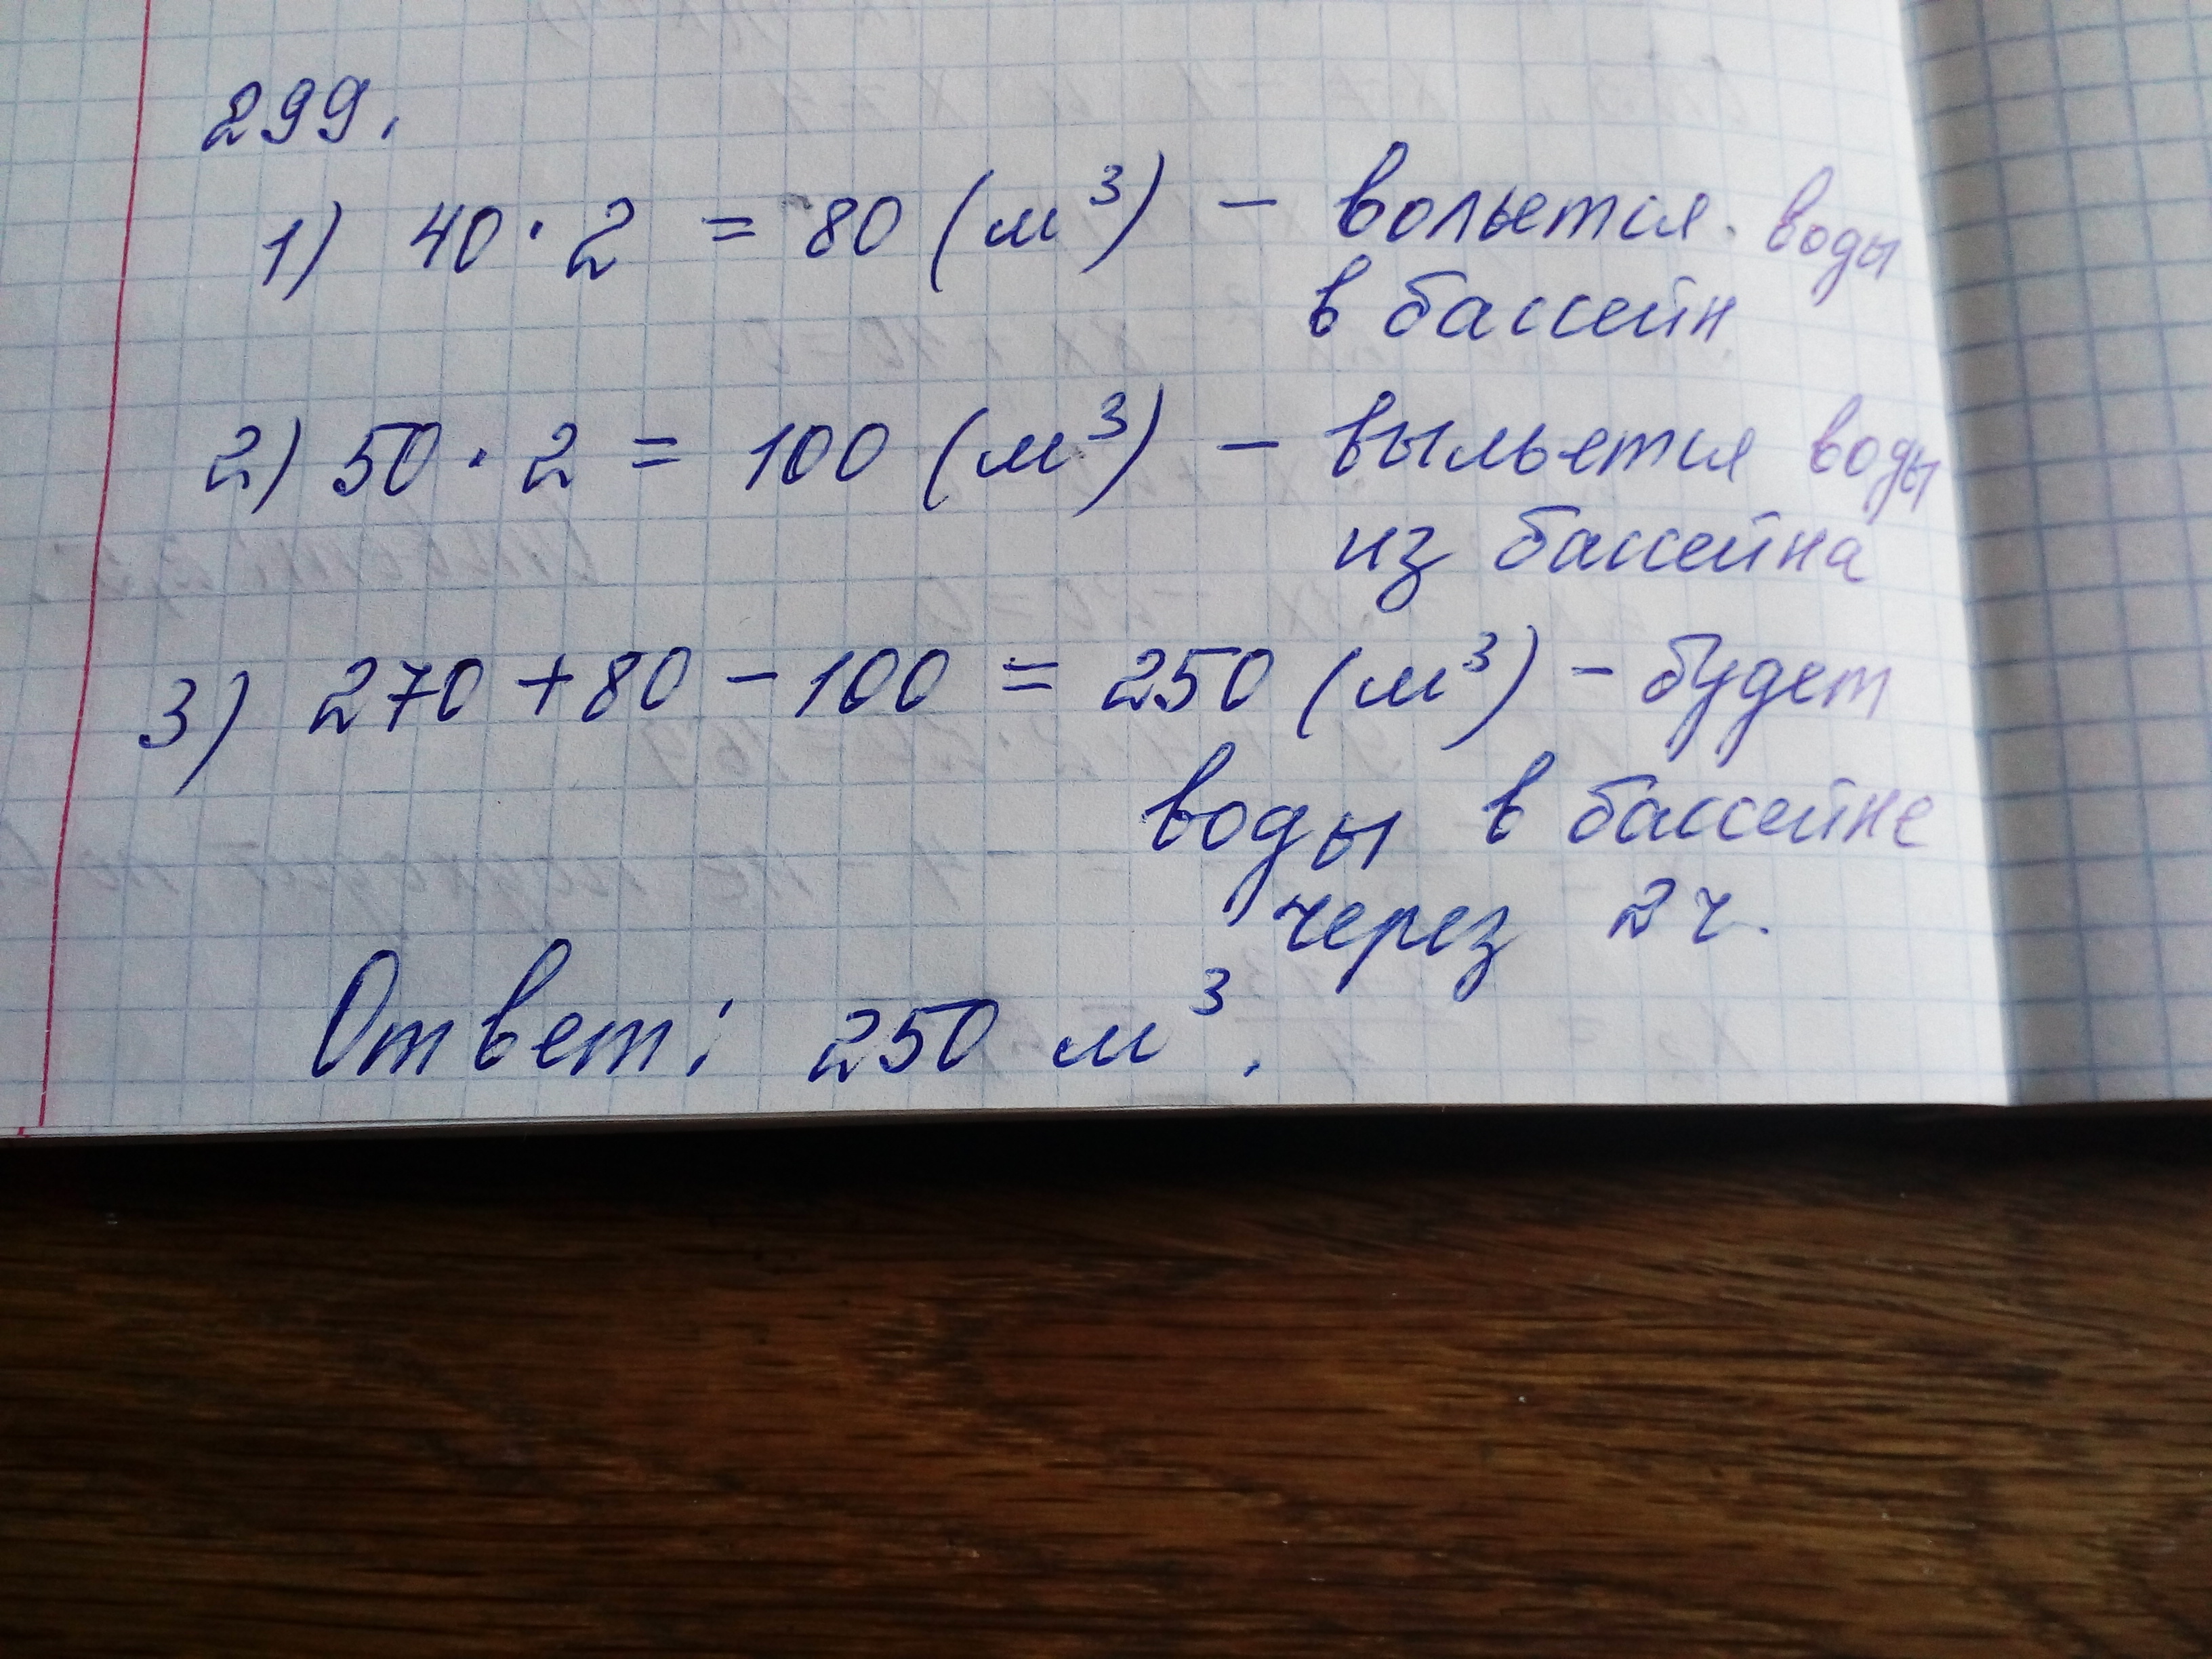 299.
1) 40 · 2 = 80 (м³) – вольется воды
в бассейн.
2) 50 · 2 = 100 (м³) – выльется воды
из бассейна
3) 270 + 80 – 100 = 250 (м³) – будет
воды в бассейне
через 2 ч.
Ответ: 250 м³.